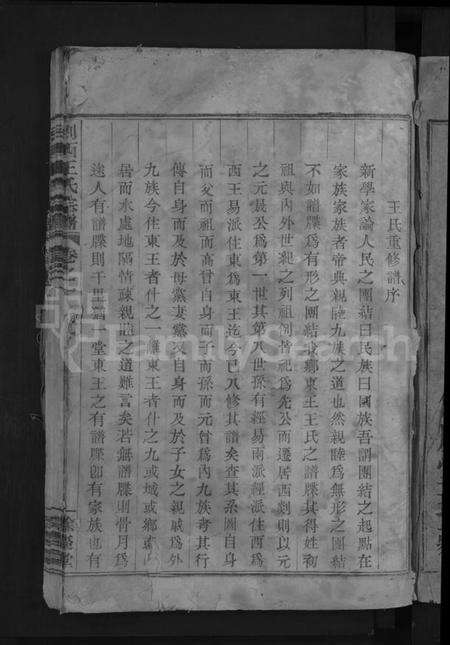 王氏重修譜序
新學家論人民之團結曰民族曰國族吾謂團結之起點在
家族家族者帝典親睦九族之道也然親睦為無形之團結
不如譜牒為有形之團結我鄉東王王氏之譜牒其得姓始
祖與內外世紀之列祖例皆祀為先公而遷居西剡則以元
之元公為第一世其第八世孫有經易兩派經派住西為
西王易派住東為東王迄今已八修其譜矣查其系圖自身
而父而祖而高曾自身而子而孫而元曾為內九族考其行
傳自身而及於母黨妻黨以自身而及於子女之親戚為外
九族今住東王者什之一離東王者什之九或城或鄉
居而水處地隔情疎親睦之道難言矣若無譜牒則骨月為
途人有譜牒則千里為一堂東王之有譜牒即有家族也有
剡西王氏宗譜
卷
FamilySearch